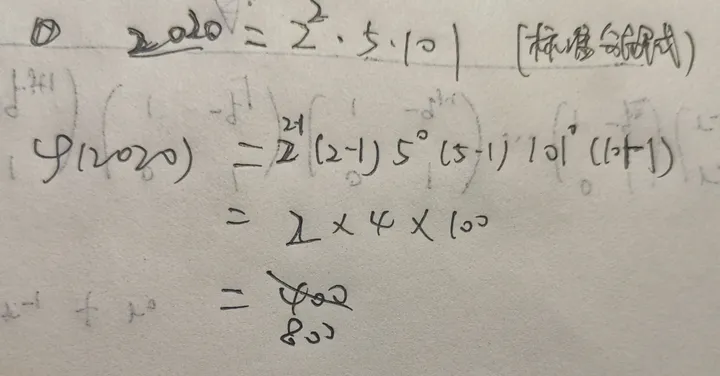 ① 2020 = 2²·5·101 (标准分解式)
φ(2020) = 2²⁻¹(2-1) 5⁰(5-1) 101⁰(101-1)
= 2×4×100
= 400
800